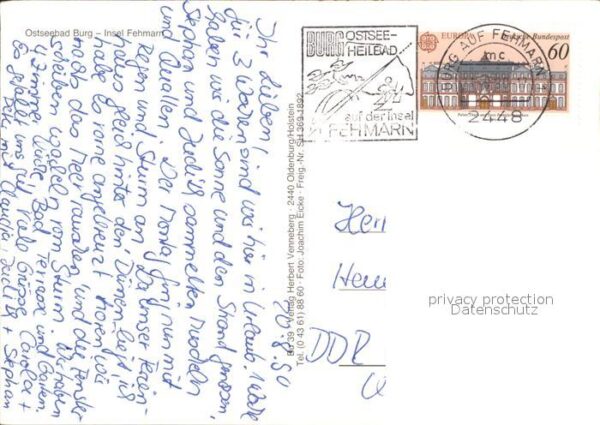 Ostseebad Burg – Insel Fehmarn
20.8.90
Ihr Lieben!
für 3 Wochen sind wir hier in Urlaub. 1 Woche
haben wir die Sonne und den Strand genossen,
Stephan und Judith sammelten Muscheln
und Quallen. Der Montag fing nun mit
Regen und Sturm an. Da unser Ferien-
haus gleich hinter den Dünen liegt, ist
nachts das Meer rauschen und die Fenster-
scheiben vom Sturm. Wir haben
4 Zimmer, Küche, Bad, Terrasse und Garten.
Es gefällt uns gut. Viele Grüße, Carola +
mit Claudia, Judith + Stephan
Bu 39 Verlag Herbert Venneberg · 2440 Oldenburg/Holstein
Tel. (0 43 61) 88 60 · Foto: Joachim Eicke · Freig.-Nr. SH 369-1892
BURG OSTSEE-
HEILBAD
auf der Insel
FEHMARN
EUROPA
Deutsche Bundespost
60
BURG AUF FEHMARN
mc
2448
Herr
DDR
privacy protection
Datenschutz